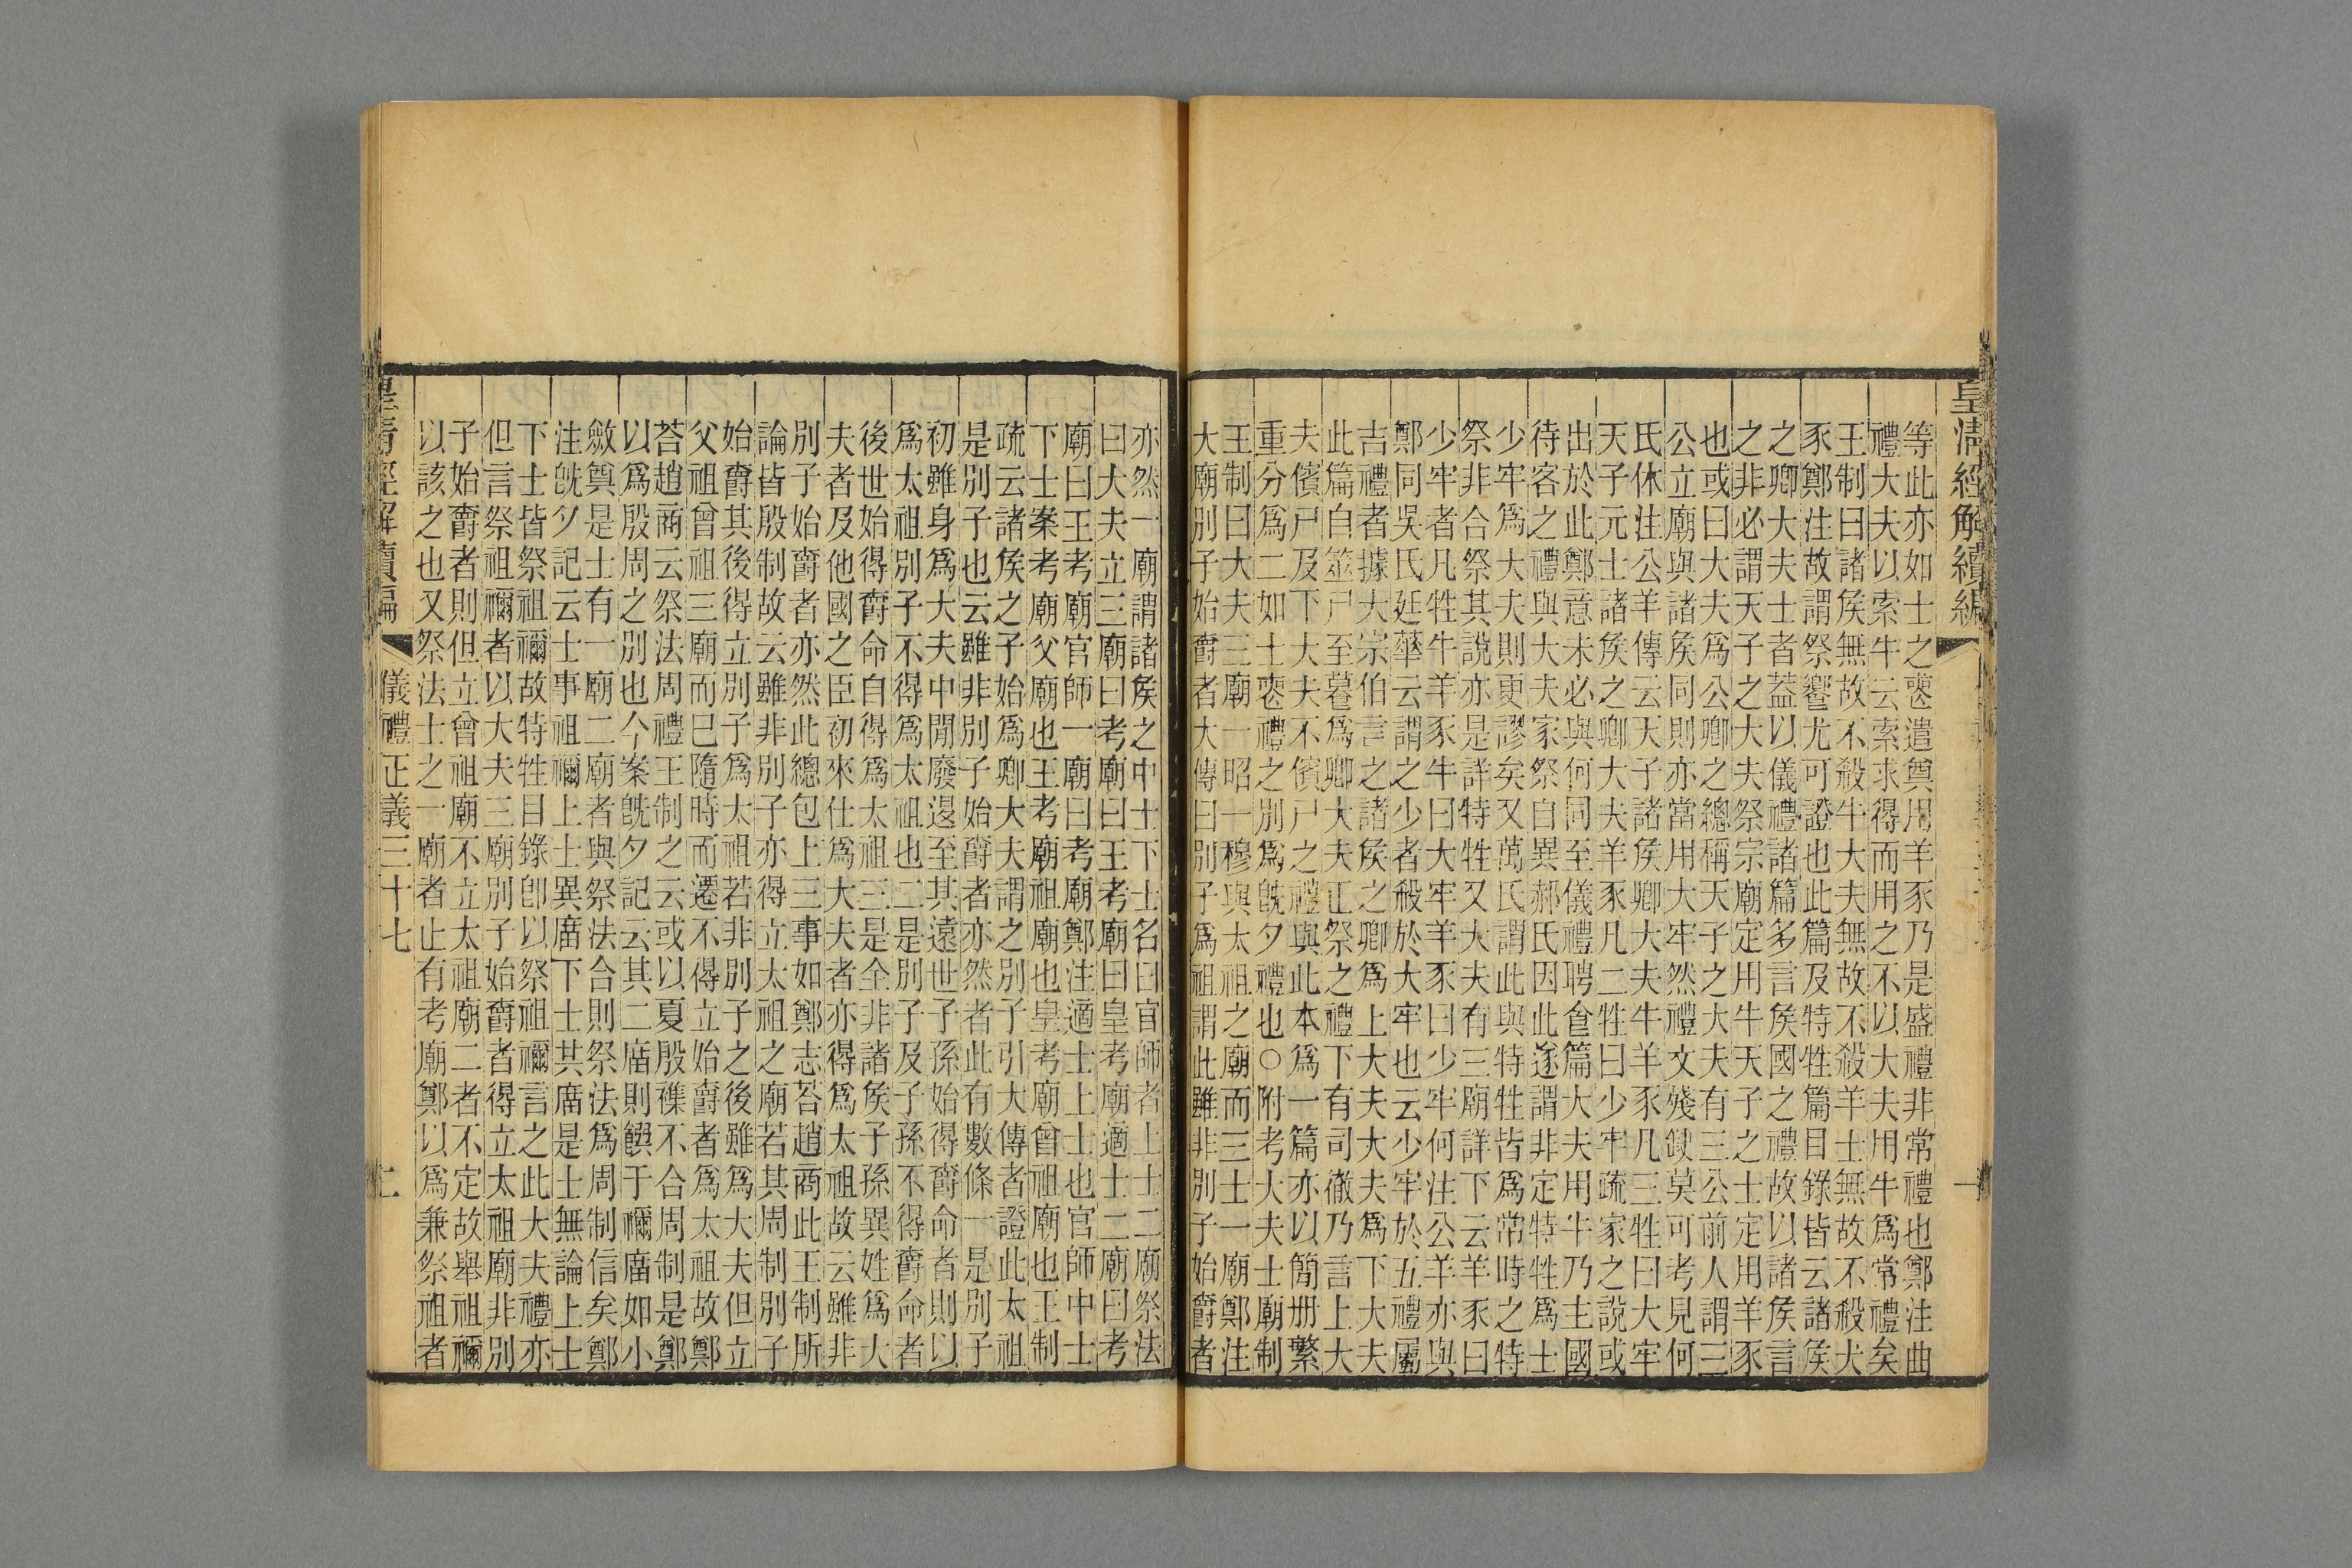 皇清經解續編
一
等此亦如士之喪遣奠用羊豕乃是盛禮非常禮也鄭注曲
禮大夫以索牛云索求得而用之不以大夫用牛爲常禮矣
王制曰諸侯無故不殺牛大夫無故不殺羊士無故不殺犬
豕鄭注故謂祭饗尤可證也此篇及特牲篇目錄皆云諸侯
之卿大夫士者葢以儀禮諸篇多言侯國之禮故以諸侯言
之非必謂天子之大夫祭宗廟定用牛天子之士定用羊豕
也或曰大夫爲公卿之總稱天子之大夫有三公前人謂三
公立廟與諸侯同則亦當用大牢然禮文殘缺莫可考見何
氏休注公羊傳云天子諸侯卿大夫牛羊豕凡三牲曰大牢
天子元士諸侯之卿大夫羊豕凡二牲曰少牢疏家之說或
出於此鄭意未必與何同至儀禮聘食篇大夫用牛乃主國
待客之禮與大夫家祭自異郝氏因此遂謂非定特牲爲士
少牢爲大夫則更謬矣又萬氏謂此與特牲皆爲常時之特
祭非合祭其說亦是詳特牲又大夫有三廟詳下云羊豕曰
少牢者凡牲牛羊豕牛曰大牢羊豕曰少牢何注公羊亦與
鄭同吳氏廷華云謂之少者殺於大牢也云少牢於五禮屬
吉禮者據大宗伯言之諸侯之卿爲上大夫大夫爲下大夫
此篇自筮尸至養爲卿大夫正祭之禮下有司徹乃言上大
夫儐尸及下大夫不儐尸之禮與此本爲一篇亦以簡册繁
重分爲二如士喪禮之別爲旣夕禮也○附考大夫士廟制
王制曰大夫三廟一昭一穆與太祖之廟而三士一廟鄭注
大廟別子始爵者大傳曰別子爲祖謂此雖非別子始爵者
亦然一廟謂諸侯之中士下士名曰官師者上士二廟祭法
曰大夫立三廟曰考廟曰王考廟曰皇考廟適士二廟曰考
廟曰王考廟官師一廟曰考廟鄭注適士上士也官師中士
下士案考廟父廟也王考廟祖廟也皇考廟曾祖廟也王制
疏云諸侯之子始爲卿大夫謂之別子引大傳者證此太祖
是別子也云雖非別子始爵者亦然者此有數條一是別子
初雖身爲大夫中閒廢退至其遠世子孫始得爵命者則以
爲太祖別子不得爲太祖也二是別子及子孫不得爵命者
後世始得爵命自得爲太祖三是全非諸侯子孫異姓爲大
夫者及他國之臣初來仕爲大夫者亦得爲太祖故云雖非
別子始爵者亦然此總包上三事如鄭志荅趙商此王制所
論皆殷制故云雖非別子亦得立太祖之廟若其周制別子
始爵其後得立別子爲太祖若非別子之後雖爲大夫但立
父祖曾祖三廟而巳隨時而遷不得立始爵者爲太祖故鄭
荅趙商云祭法周禮王制之云或以夏殷襍不合周制是鄭
以爲殷周之別也今案旣夕記云其二廟則饌于禰廟如小
斂奠是士有一廟二廟者與祭法合則祭法爲周制信矣鄭
注旣夕記云士事祖禰上士異廟下士其廟是士無論上士
下士皆祭祖禰故特牲目錄卽以祭祖禰言之此大夫禮亦
但言祭祖禰者以大夫三廟別子始爵者得立太祖廟非別
子始爵者則但立曾祖廟不立太祖廟二者不定故舉祖禰
以該之也又祭法士之一廟者止有考廟鄭以爲兼祭祖者
皇清經解續編
儀禮正義三十七